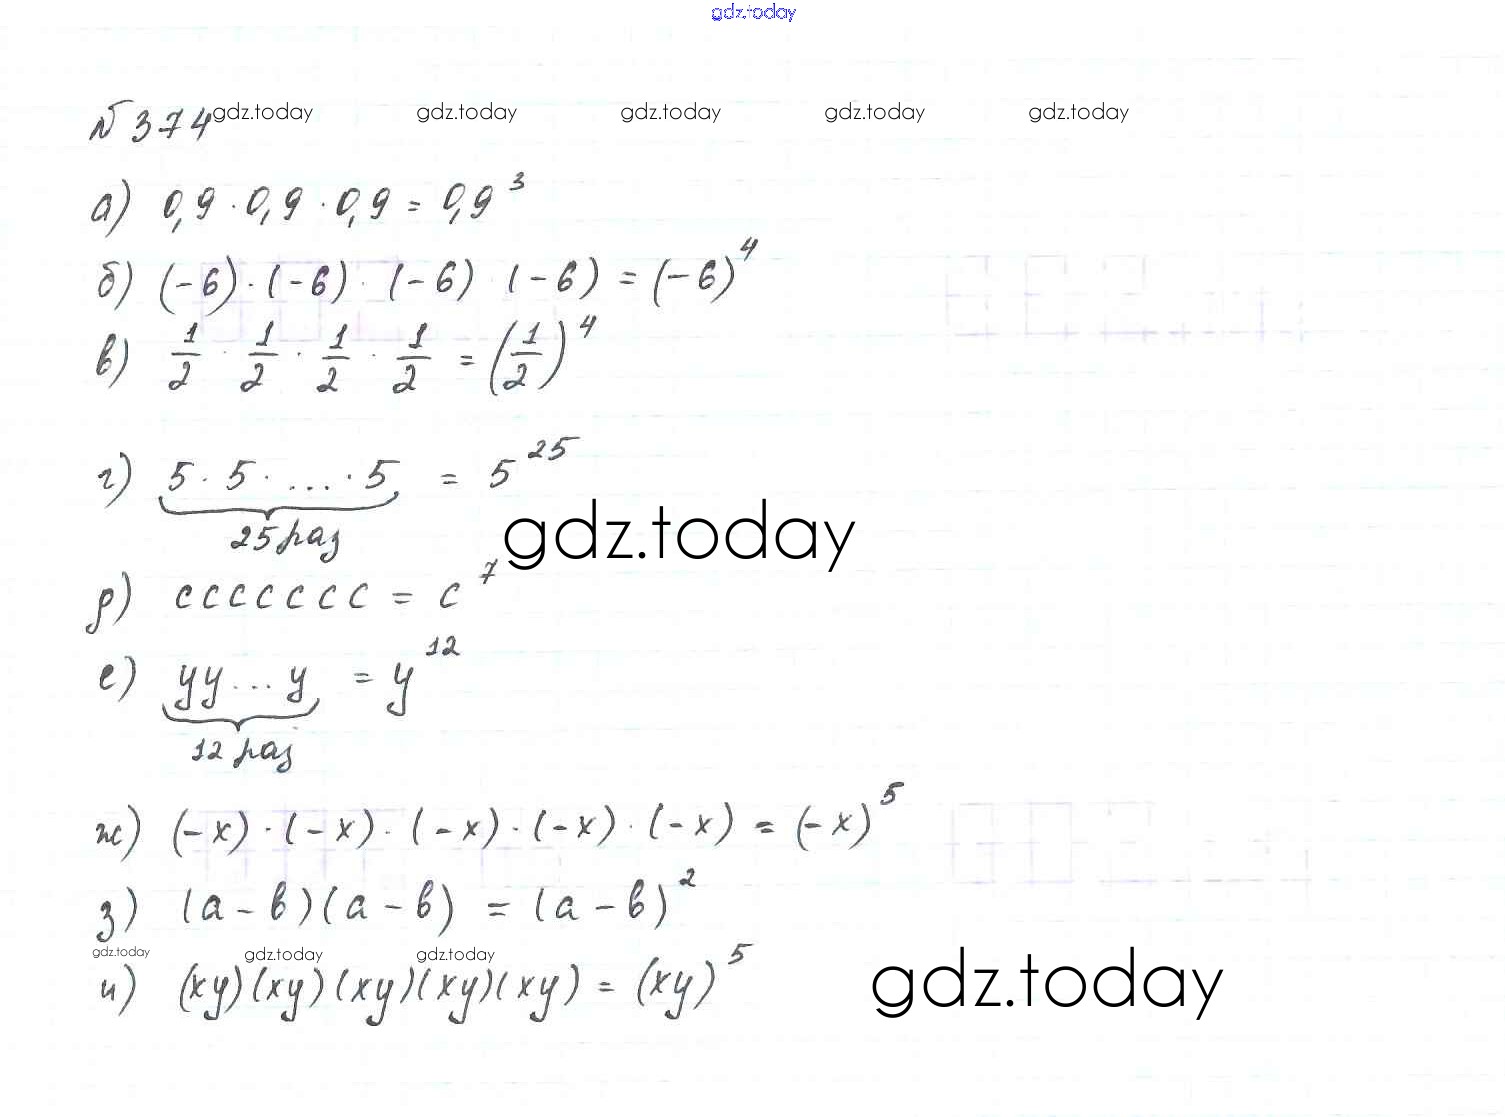 gdz.today
№374 gdz.today gdz.today gdz.today gdz.today gdz.today
а) 0,9 · 0,9 · 0,9 = 0,9³
б) (-6) · (-6) · (-6) · (-6) = (-6)⁴
в) 1/2 · 1/2 · 1/2 · 1/2 = (1/2)⁴
г) 5 · 5 · ... · 5 = 5²⁵
25 раз
gdz.today
д) ccccccc = c⁷
е) yy...y = y¹²
12 раз
ж) (-x) · (-x) · (-x) · (-x) · (-x) = (-x)⁵
з) (a-b)(a-b) = (a-b)²
gdz.today gdz.today gdz.today
и) (xy)(xy)(xy)(xy)(xy) = (xy)⁵
gdz.today